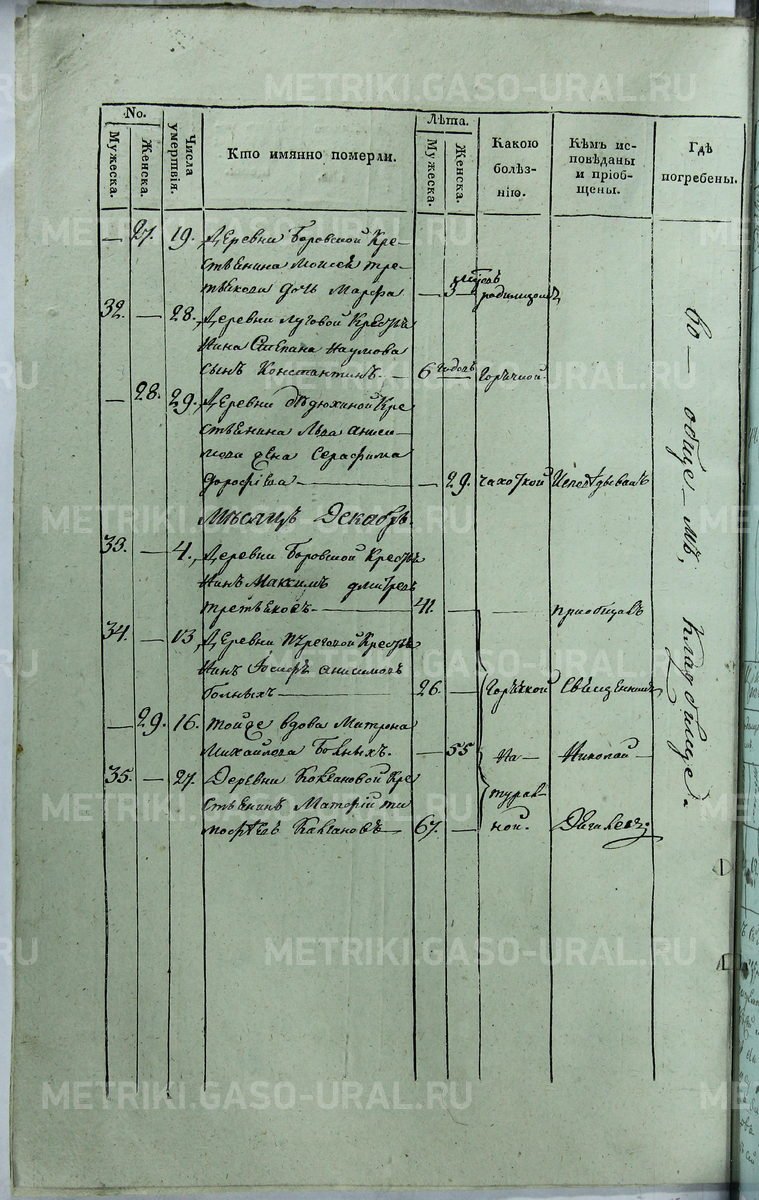 METRIKI.GASO-URAL.RU
No.
Мужеска.
Женска.
Числа умертвія.
Кто имянно померли.
Лѣта.
Мужеска.
Женска.
Какою болѣз- нію.
Кѣмъ ис- повѣданы и пріоб- щены.
Гдѣ погребены.
— 27. 19. Деревни Боровской Кре-
стьянина Моисея Тре-
тьякова дочь Марфа — 3 родимцомъ
32. — 28. Деревни Луговой Кресть
янина Степана Наумова
сынъ Константинъ — 6 годовъ горячкой
— 28. 29. Деревни Кре
стьянина Льва Аниси-
мова жена Серафима
— 29. чахоткой Исповѣдывалъ
Мѣсяцъ Декабрь.
33. — 4. Деревни Боровской Кресть
янинъ Максимъ Дмитревъ
Третьяковъ — 41. — пріобщалъ
34. — 13. Деревни Кресть
янинъ Іосифъ Анисимовъ
Больныхъ — 26. — горячкой Священникъ
— 29. 16. Тойже вдова Матрона
Михайлова Больныхъ. — 55 на- Николай
35. — 27. Деревни Кокшановой Кре
стьянинъ Ти
мофѣевъ Кокшановъ — 67. — турал- ной.
во — обще — мъ, кладбище.